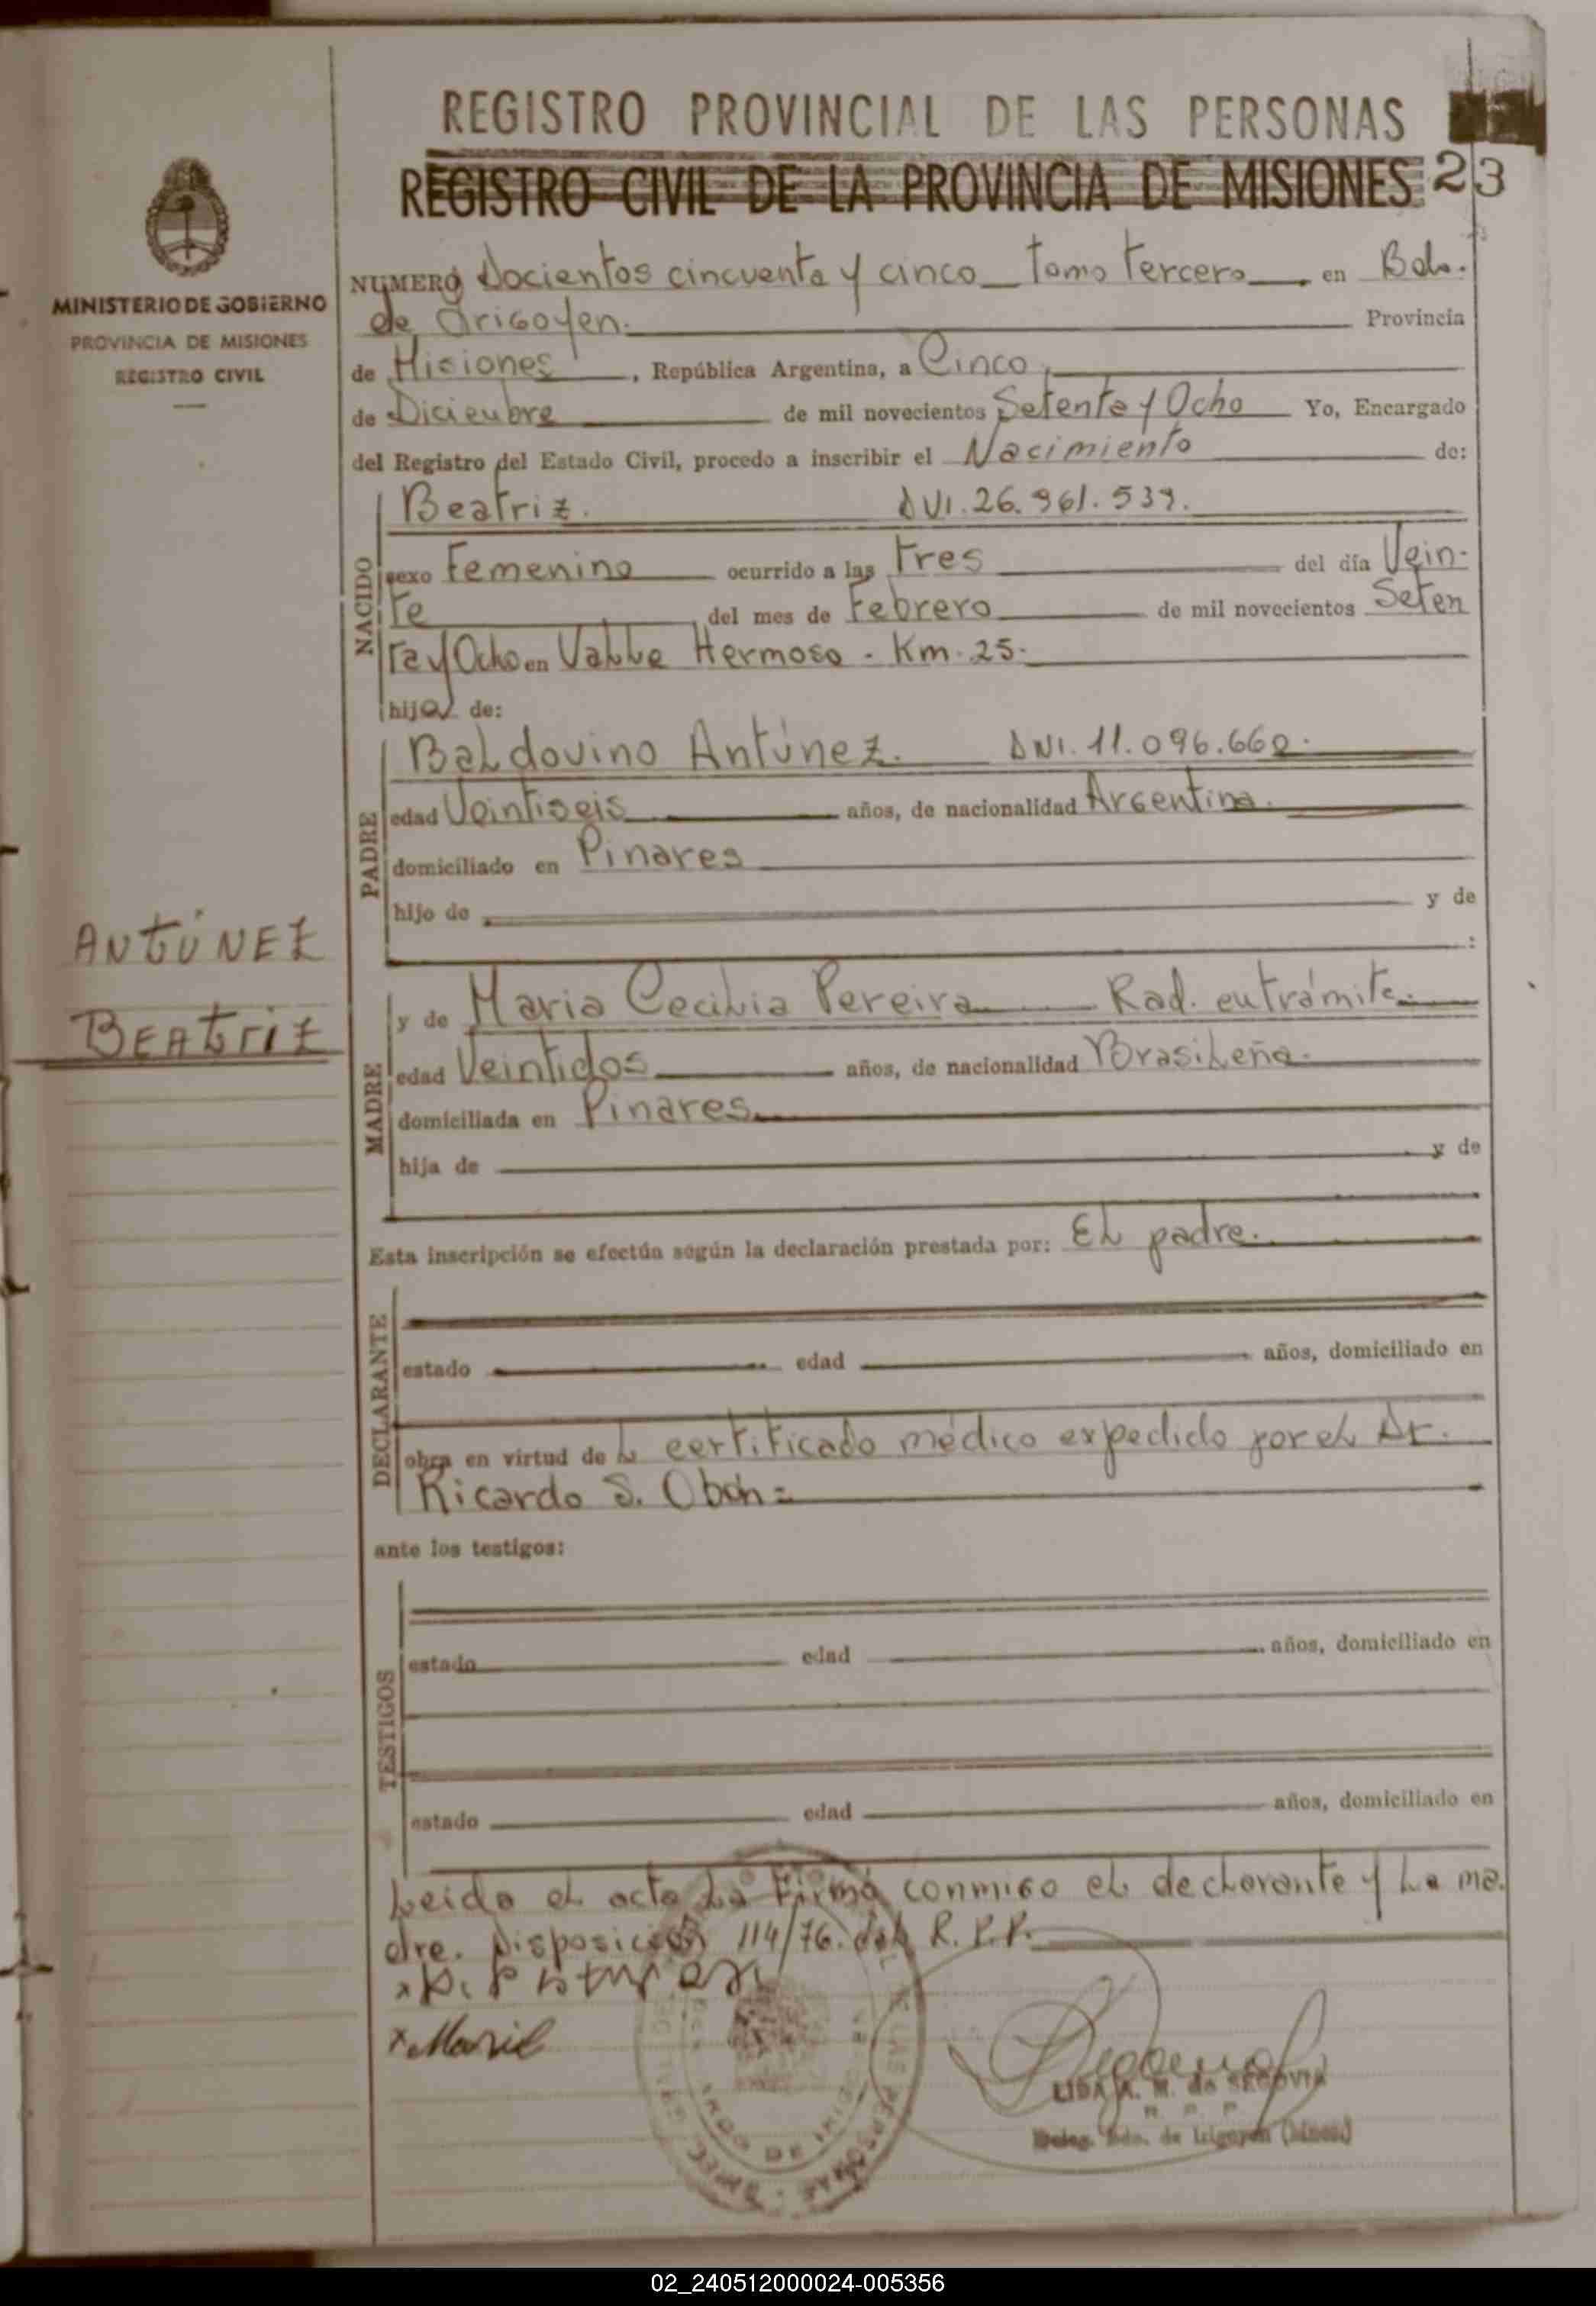 REGISTRO PROVINCIAL DE LAS PERSONAS
REGISTRO CIVIL DE LA PROVINCIA DE MISIONES 23
MINISTERIO DE GOBIERNO
PROVINCIA DE MISIONES
REGISTRO CIVIL
NUMERO Docientos cincuenta y cinco_ Tomo Tercero en Bdo.
de Irigoyen. Provincia
de Misiones, República Argentina, a Cinco
de Diciembre de mil novecientos Setenta y Ocho Yo, Encargado
del Registro del Estado Civil, procedo a inscribir el Nacimiento de:
NACIDO
Beatriz. DNI. 26.961.539.
sexo Femenino ocurrido a las Tres del día Vein-
te del mes de Febrero de mil novecientos Seten
ta y Ocho en Valle Hermoso - Km. 25.
hija de:
PADRE
Baldovino Antúnez. DNI. 11.096.660.
edad Veintiseis años, de nacionalidad Argentina.
domiciliado en Pinares
hijo de y de
:
ANTÚNEZ
BEATriz
MADRE
y de Maria Cecilia Pereira Rad. en trámite.
edad Veintidos años, de nacionalidad Brasileña.
domiciliada en Pinares
hija de y de
Esta inscripción se efectúa según la declaración prestada por: El padre.
DECLARANTE
estado edad años, domiciliado en
obra en virtud de certificado médico expedido por el Dr.
Ricardo S. Obon=
ante los testigos:
TESTIGOS
estado edad años, domiciliado en
estado edad años, domiciliado en
Leida el acta la Firma conmigo el declarante y la ma-
dre. Disposición 114/76. del R.P.P.
x Maria
LIDA A. M. de SEGOVIA
R P P
Deleg. Bdo. de Irigoyen (Mnes.)
02_240512000024-005356